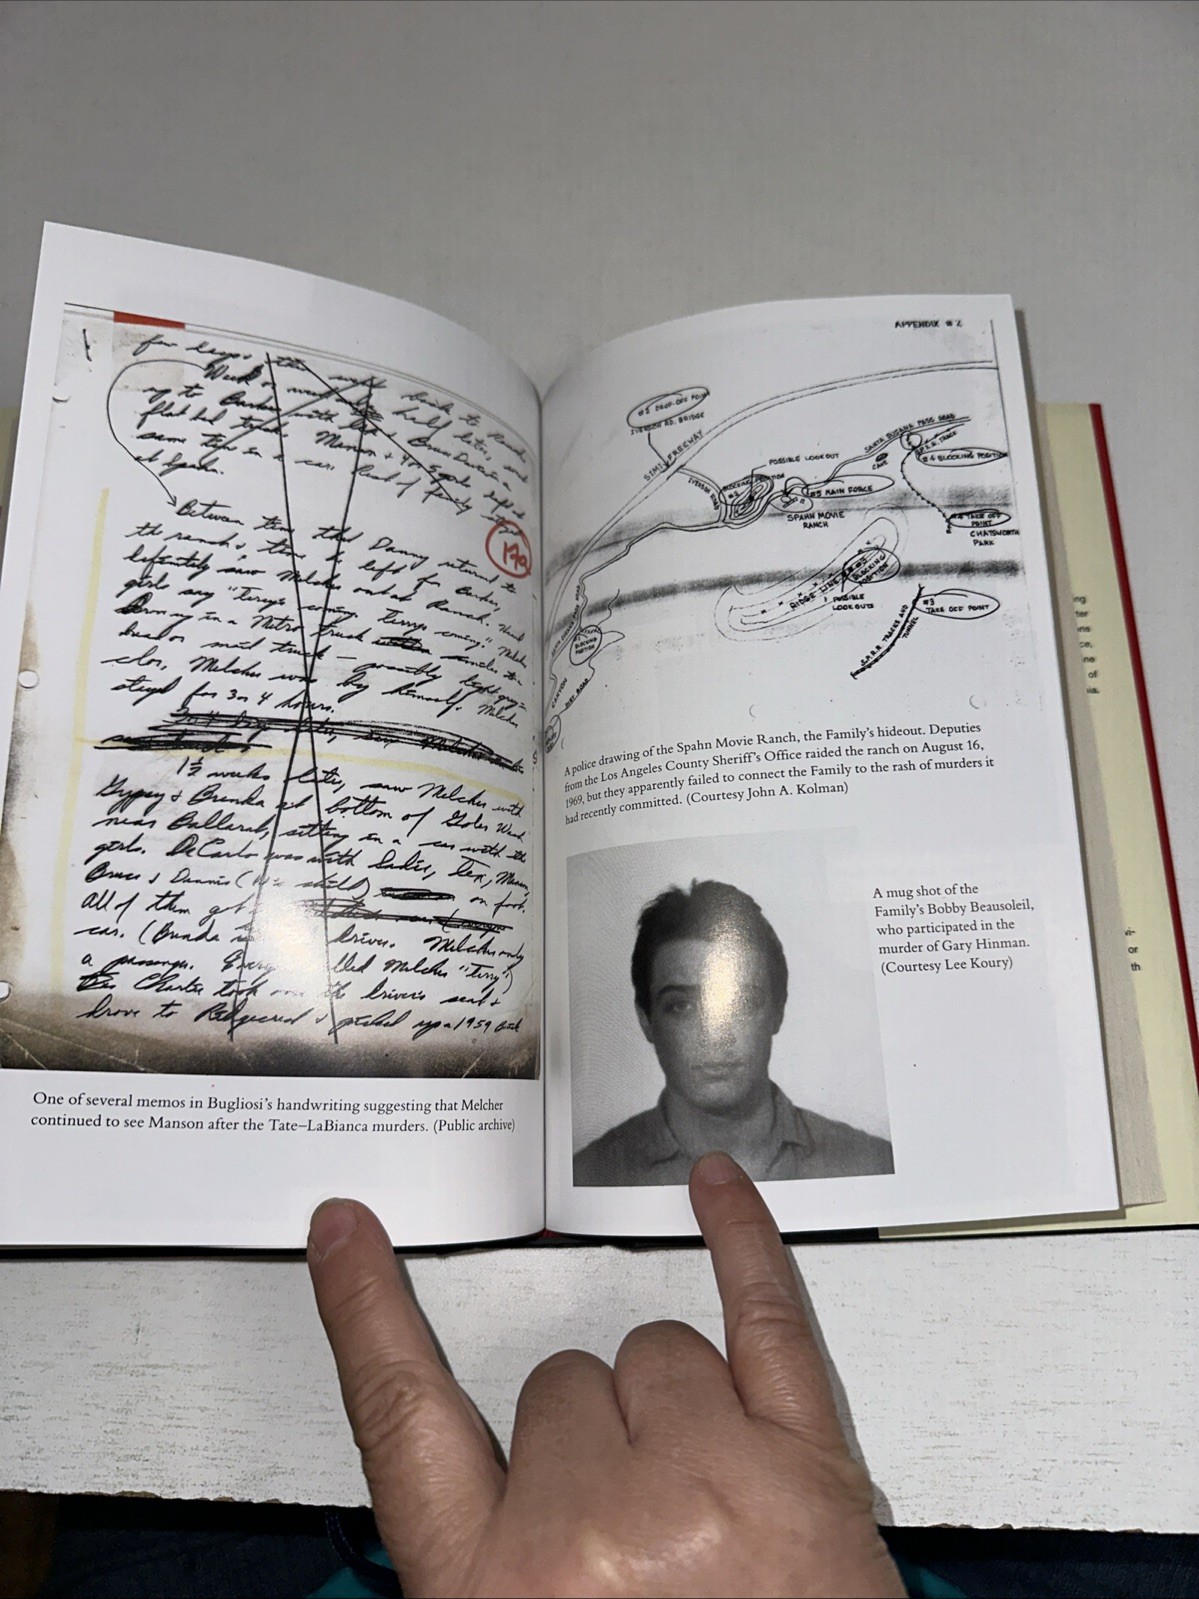 for
Week or
up to Barker with
flat bed truck. Manson &
same time in a car. Rest of family
at Spahn.
Between time that Danny returned to
the ranch, & time he left for Barker,
definitely saw Melcher out at Ranch. Heard
girls say "Terry's coming, Terry's coming". Melcher
drove up in a Metro truck similar to a
bread or mail truck —
color, Melcher was by himself. Melcher
stayed for 3 or 4 hours.
170
1½ weeks later, saw Melcher with
Gypsy & Brenda at bottom of Goler Wash
near Ballarat, sitting in a car with the
girls. DeCarlo was with Sadie, Tex, Manson,
Bruce & Dennis on foot.
All of them got
car. (Brenda driver. Melcher only
a passenger. Melcher "Terry")
Charlie took over the driver's seat &
drove to & picked up a 1959
One of several memos in Bugliosi's handwriting suggesting that Melcher
continued to see Manson after the Tate–LaBianca murders. (Public archive)
APPENDIX # 2
#2 DROP-OFF POINT
IVERSON RD. BRIDGE
SIMI FREEWAY
IVERSON ROAD
BLOCKING POSITION
#2
POSSIBLE LOOKOUT
SANTA SUSANA PASS ROAD
CAVE
#4 BLOCKING POSITION
#5 MAIN FORCE
SPAHN MOVIE
RANCH
TAKE OFF
POINT
CHATSWORTH
PARK
RIDGE LINE
BLOCKING
POSITION
POSSIBLE
LOOKOUTS
#3
TAKE OFF POINT
S.P.R.R. TRACKS AND
TUNNEL
BLOCKING
POSITION
CANYON
DIRT ROAD
A police drawing of the Spahn Movie Ranch, the Family's hideout. Deputies
from the Los Angeles County Sheriff's Office raided the ranch on August 16,
1969, but they apparently failed to connect the Family to the rash of murders it
had recently committed. (Courtesy John A. Kolman)
A mug shot of the
Family's Bobby Beausoleil,
who participated in the
murder of Gary Hinman.
(Courtesy Lee Koury)